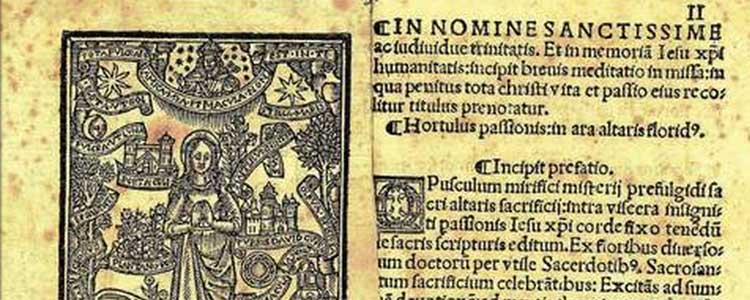 II
¶IN NOMINE SANCTISSIME
ac indiuidue trinitatis. Et in memoriã Iesu xp̃i
humanitatis:incipit breuis meditatio in missa:in
qua penitus tota christi vita et passio eius reco⸗
litur titulus prenotatur.
¶Hortulus passionis:in ara altaris floridꝰ.
¶Incipit prefatio.
OPusculum mirifici misterij prefulgidi sa
cri altaris sacrificij:intra viscera insignis⸗
ti passionis Iesu xp̃i corde fixo tenedũ
ie sacris scripturis editum. Ex floribus diuerso⸗
um doctorũ per vtile Sacerdotibꝰ. Sacrosan⸗
tum sacrificium celebrãtibus: Excitãs ad sum⸗
TOTA PVLCRA
EST. IN. TE
MACVLA NON
PLANTA
TVRRIS DAVID CV